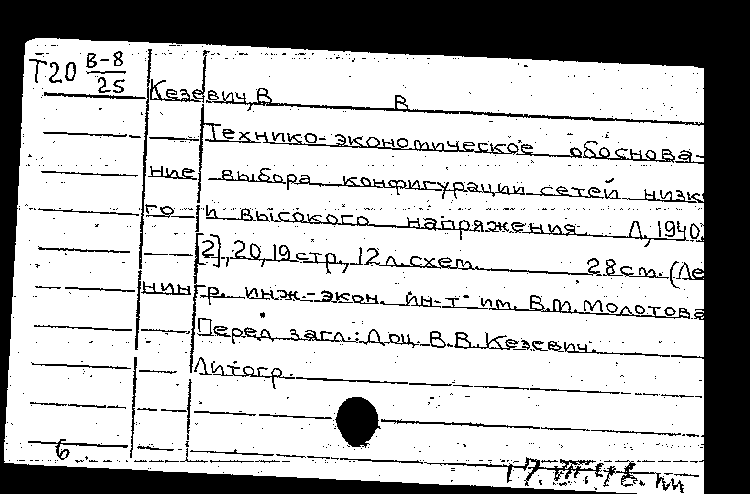 Т20 В-8
25
Кезевич, В В
Технико-экономическое обоснова-
ние выбора конфигураций сетей низк
го и высокого напряжения Л, 1940.
[2], 20, 19 стр., 12 л. схем. 28 см. (Ле
нингр. инж.-экон. ин-т им. В.М. Молотова
Перед загл.: Доц. В.В. Кезевич.
Литогр.
6
17.VII.48.